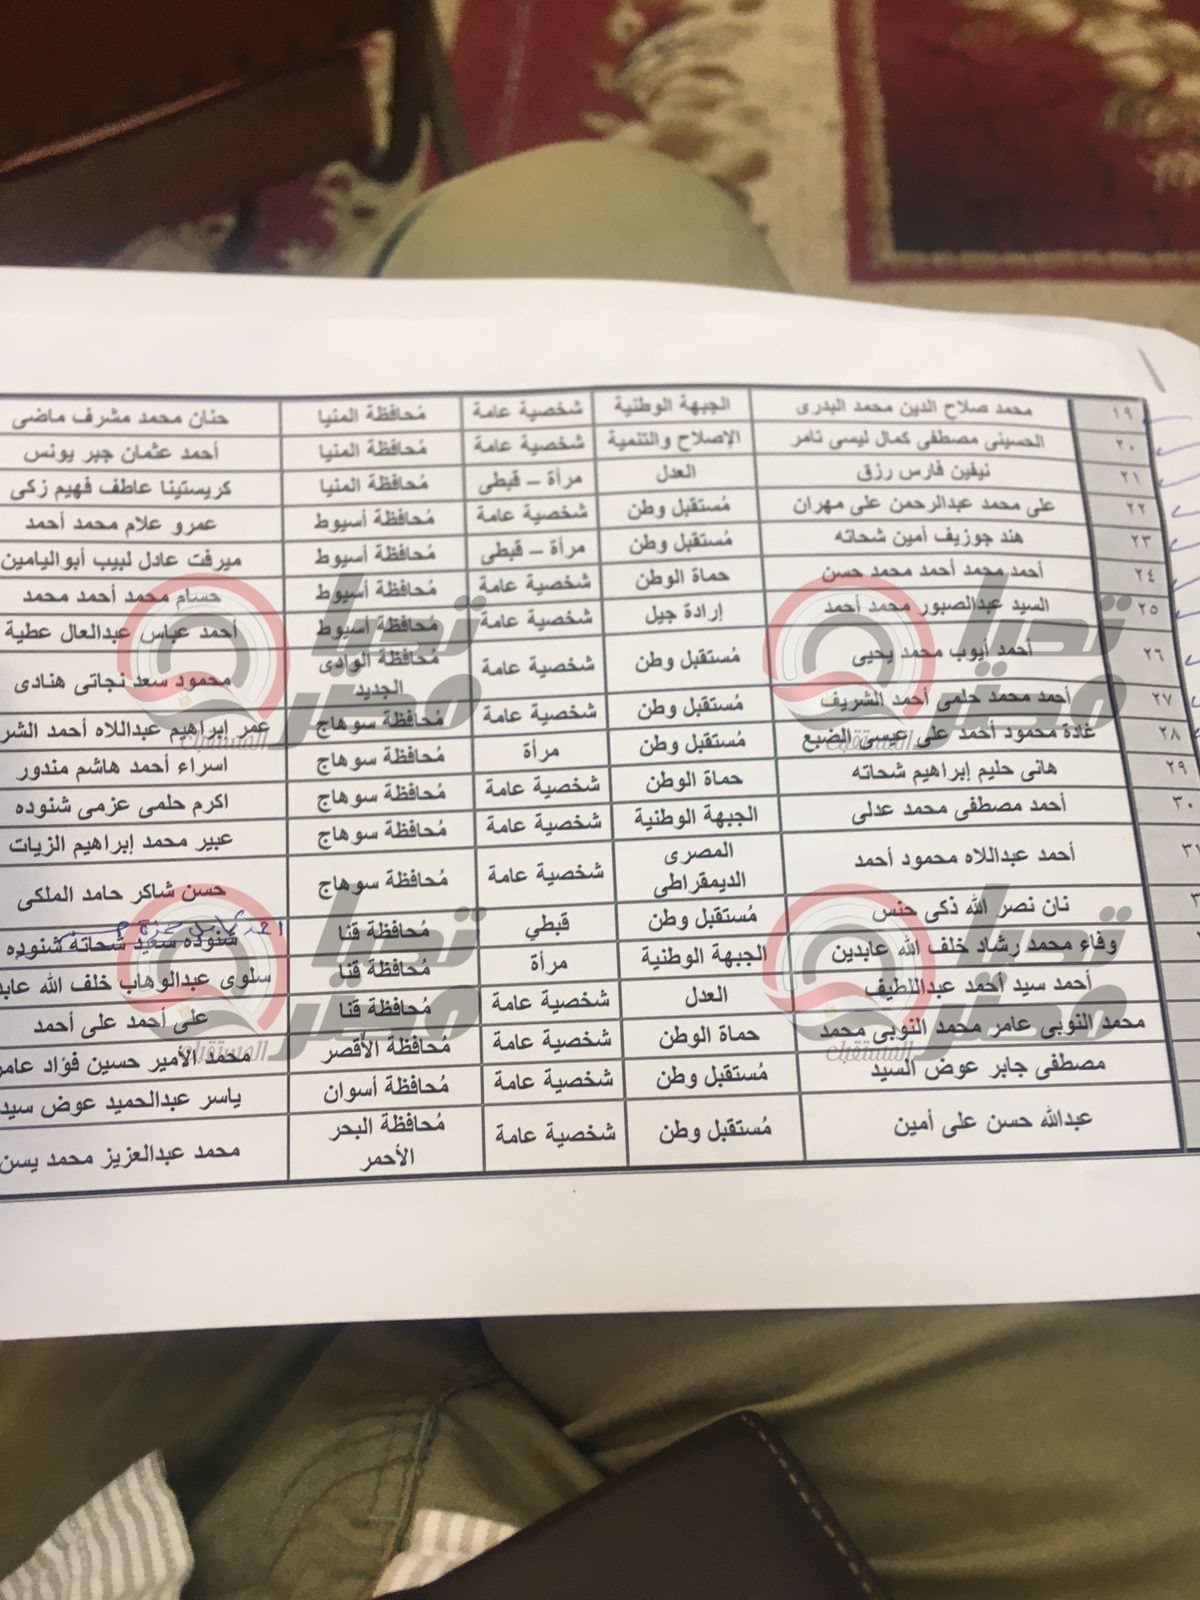 ١٩ محمد صلاح الدين محمد البدرى الجبهة الوطنية شخصية عامة مُحافظة المنيا حنان محمد مشرف ماضى
٢٠ الحسينى مصطفى كمال ليسى تامر الإصلاح والتنمية شخصية عامة مُحافظة المنيا أحمد عثمان جبر يونس
٢١ نيفين فارس رزق العدل مرأة – قبطى مُحافظة المنيا كريستينا عاطف فهيم زكى
٢٢ على محمد عبدالرحمن على مهران مُستقبل وطن شخصية عامة مُحافظة أسيوط عمرو علام محمد أحمد
٢٣ هند جوزيف أمين شحاته مُستقبل وطن مرأة – قبطى مُحافظة أسيوط ميرفت عادل لبيب أبواليامين
٢٤ أحمد محمد أحمد محمد حسن حماة الوطن شخصية عامة مُحافظة أسيوط حسام محمد أحمد محمد
٢٥ السيد عبدالصبور محمد أحمد إرادة جيل شخصية عامة مُحافظة أسيوط أحمد عباس عبدالعال عطية
٢٦ أحمد أيوب محمد يحيى مُستقبل وطن شخصية عامة مُحافظة الوادى الجديد محمود سعد نجاتى هنادى
٢٧ أحمد محمد حلمى أحمد الشريف مُستقبل وطن شخصية عامة مُحافظة سوهاج عمر إبراهيم عبداللاه أحمد الشر
٢٨ غادة محمود أحمد على عيسى الضبع مُستقبل وطن مرأة مُحافظة سوهاج اسراء أحمد هاشم مندور
٢٩ هانى حليم إبراهيم شحاته حماة الوطن شخصية عامة مُحافظة سوهاج اكرم حلمى عزمى شنوده
٣٠ أحمد مصطفى محمد عدلى الجبهة الوطنية شخصية عامة مُحافظة سوهاج عبير محمد إبراهيم الزيات
٣١ أحمد عبداللاه محمود أحمد المصرى الديمقراطى شخصية عامة مُحافظة سوهاج حسن شاكر حامد الملكى
٣ نان نصر الله ذكى حنس مُستقبل وطن قبطي مُحافظة قنا شنوده سعيد شحاته شنوده
وفاء محمد رشاد خلف الله عابدين الجبهة الوطنية مرأة مُحافظة قنا سلوى عبدالوهاب خلف الله عابد
أحمد سيد أحمد عبداللطيف العدل شخصية عامة مُحافظة قنا على أحمد على أحمد
محمد النوبى عامر محمد النوبى محمد حماة الوطن شخصية عامة مُحافظة الأقصر محمد الأمير حسين فؤاد عامر
مصطفى جابر عوض السيد مُستقبل وطن شخصية عامة مُحافظة أسوان ياسر عبدالحميد عوض سيد
عبدالله حسن على أمين مُستقبل وطن شخصية عامة مُحافظة البحر الأحمر محمد عبدالعزيز محمد يسن
تحيا مصر المستقبل
تحيا مصر المستقبل
تحيا مصر المستقبل
تحيا مصر المستقبل